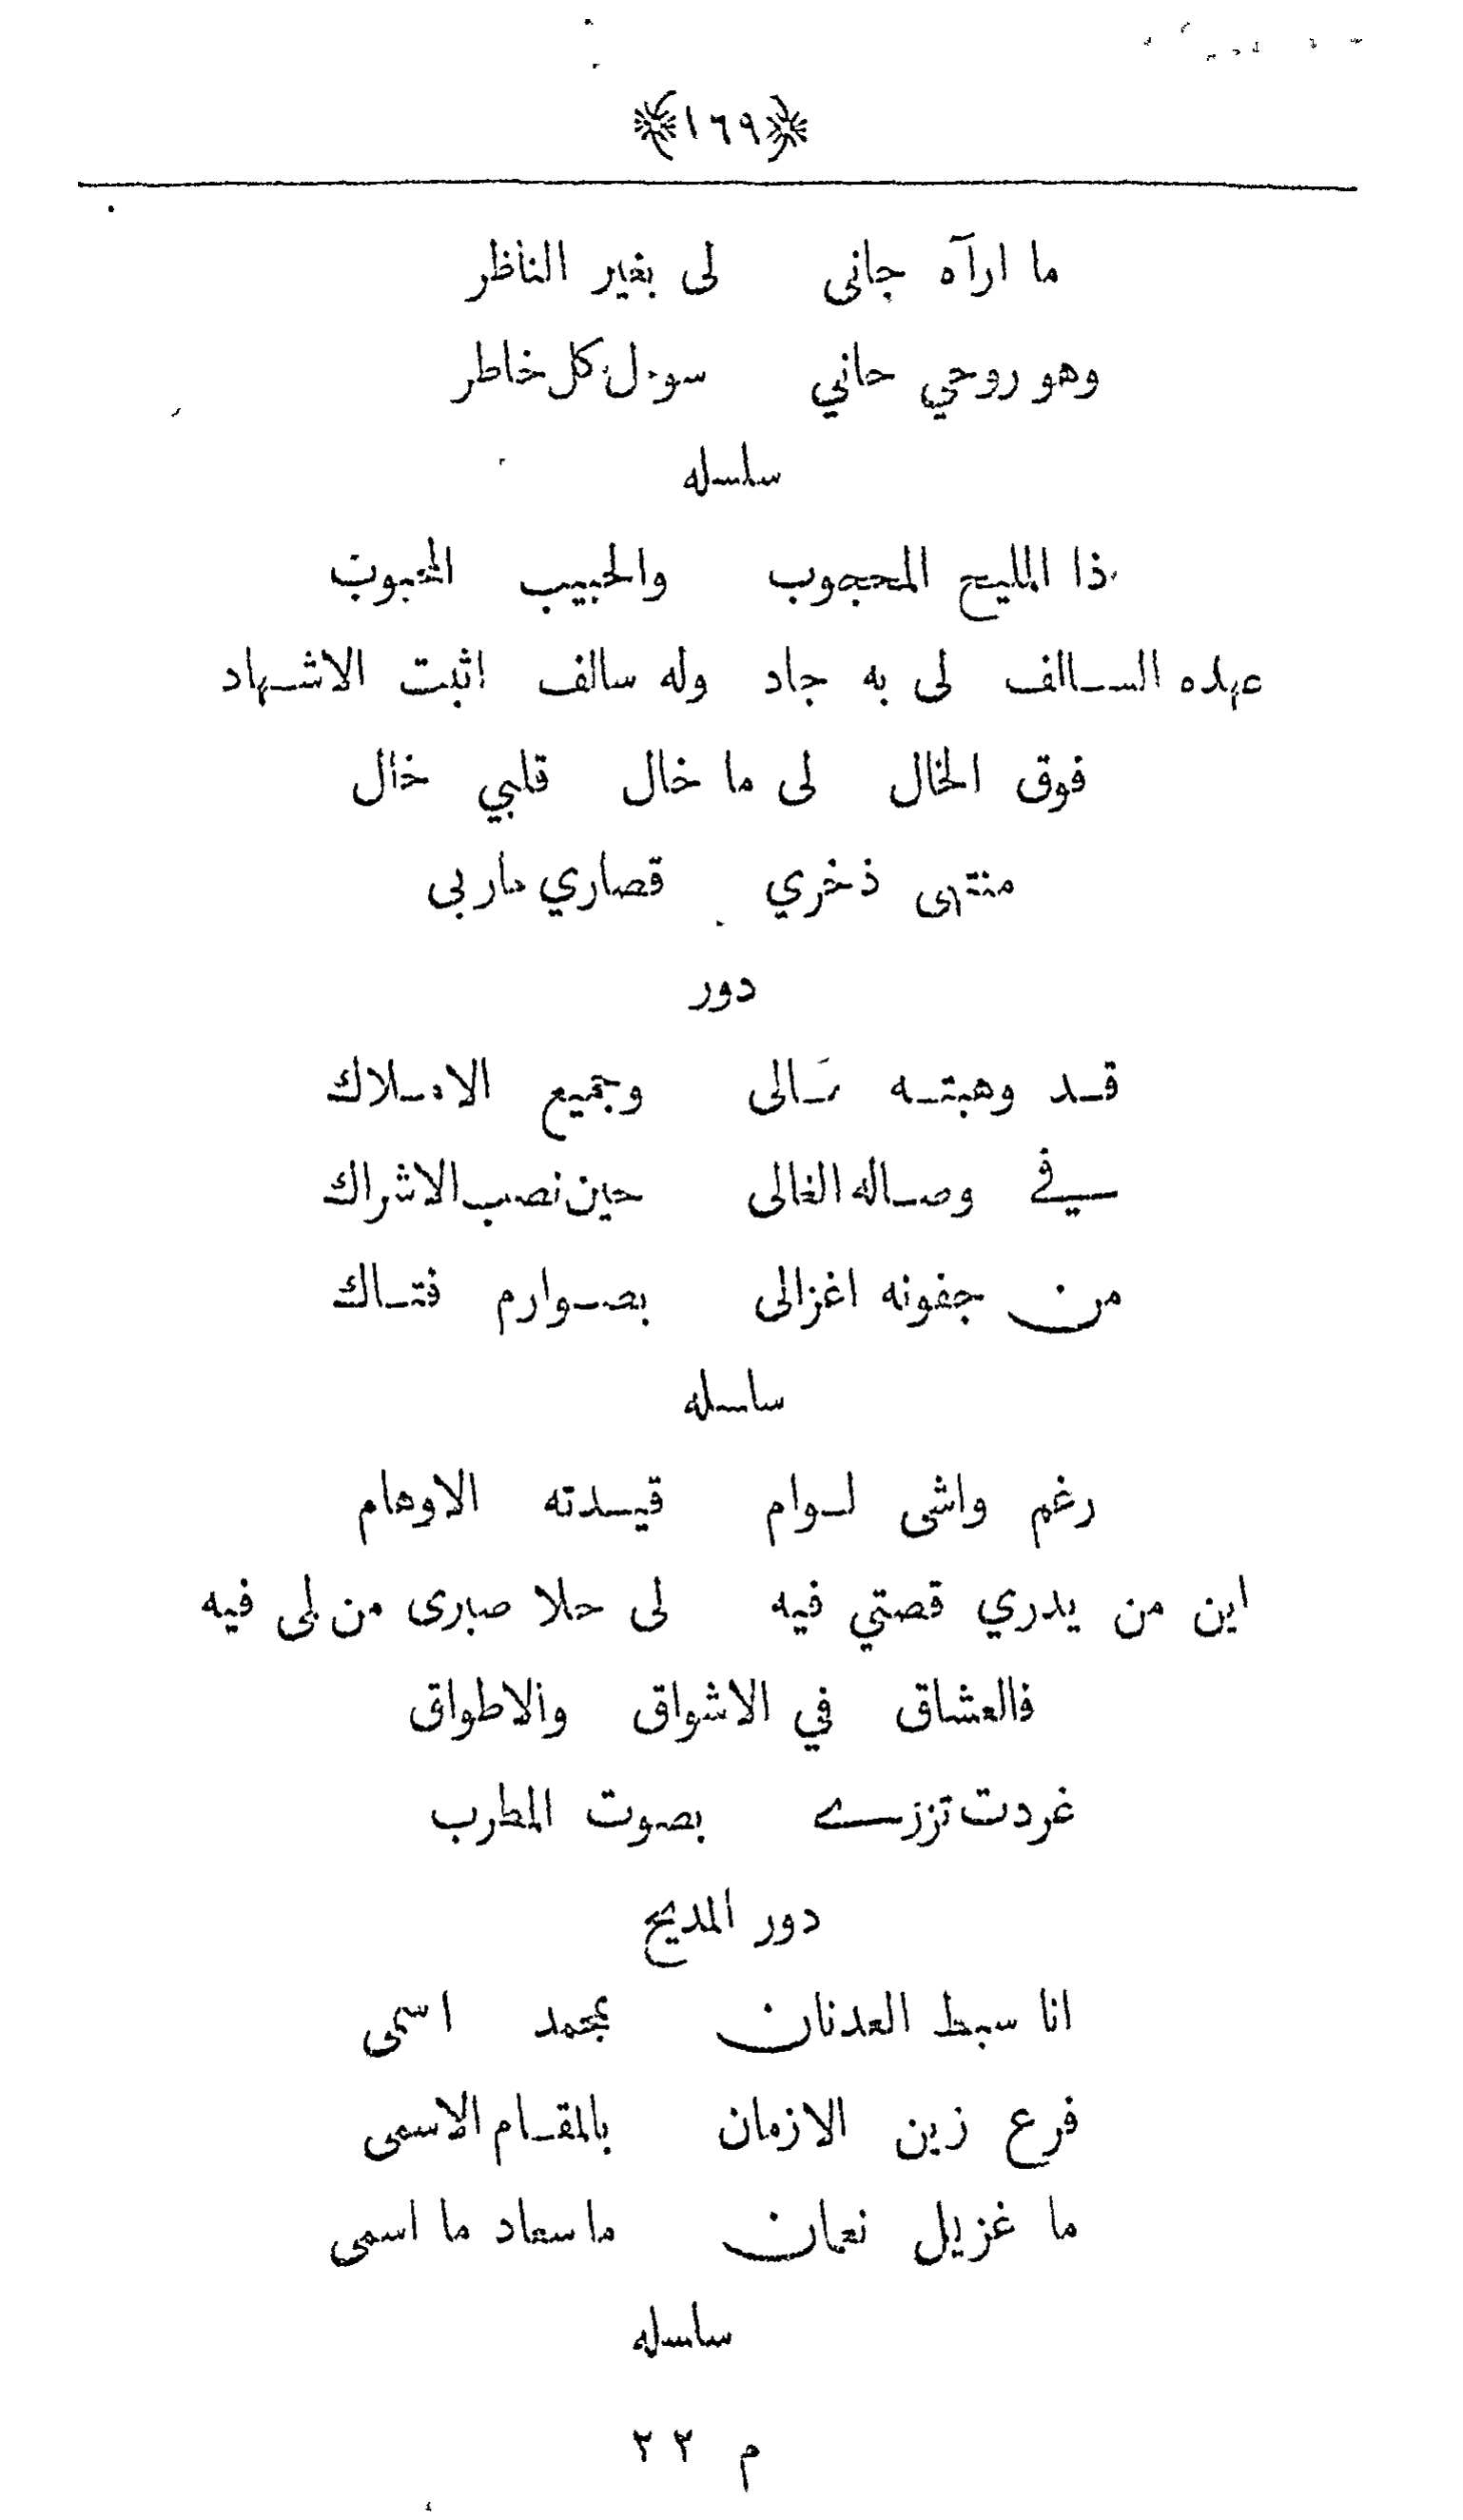 ﴿١٦٩﴾
ما ارآه جانى لى بغير الناظر
وهو روحي حاني سوءل كل خاطر
سلسله
ذا المليح المحجوب والحبيب المحبوب
عهده السالف لى به جاد وله سالف اثبت الاشهاد
فوق الخال لى ما خال قلبي خال
منتهى ذخري قصاري مار بى
دور
قد وهبته مالى وجميع الاملاك
في وصاله الغالى حين نصب الاشراك
من جفونه اغزالى بصوارم فتاك
سلسله
رغم واشى لوام قيدته الاوهام
اين من يدري قصتي فيه لى حلا صبرى من لى فيه
فالعشاق في الاشواق والاطواق
غردت تزرے بصوت المطرب
دور المديح
انا سبط العدنان بمحمد اسمى
فرع زين الازمان بالمقام الاسمى
ما غزيل نعمان ما سعاد ما اسمى
سلسله
م ٢٢